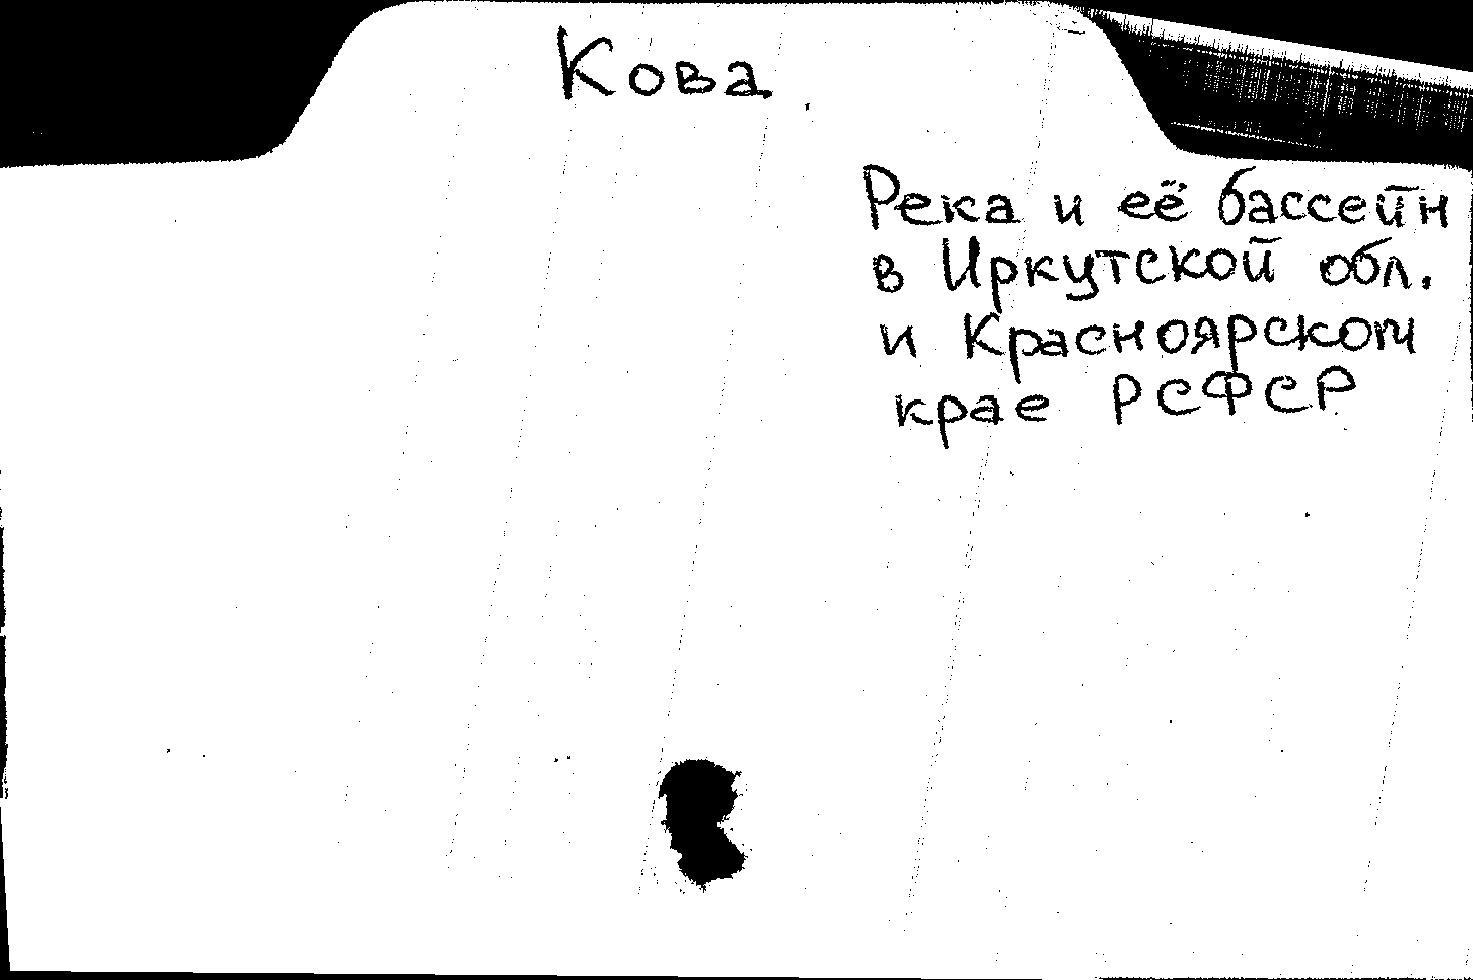 Кова
Река и её бассейн
в Иркутской обл.
и Красноярском
крае РСФСР